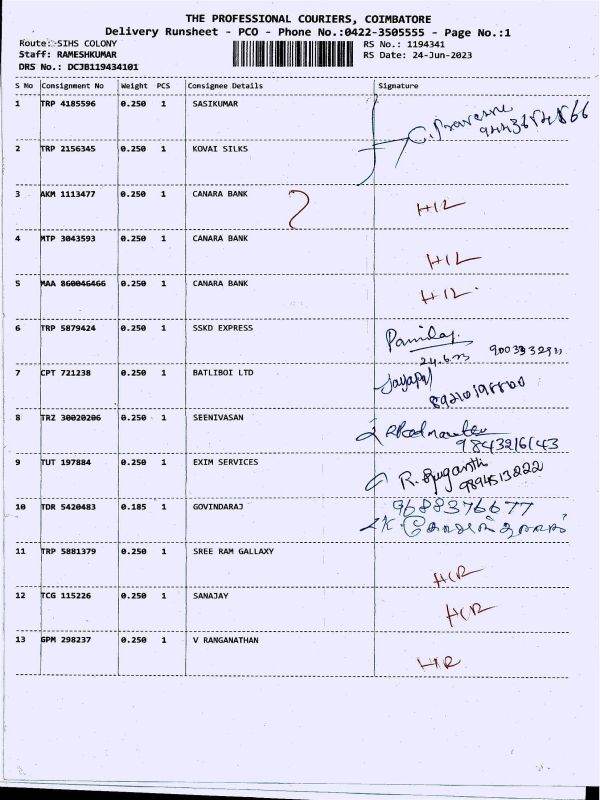 THE PROFESSIONAL COURIERS, COIMBATORE
Delivery Runsheet - PCO - Phone No.:0422-3505555 - Page No.:1
Route: SIHS COLONY
RS No.: 1194341
Staff: RAMESHKUMAR
RS Date: 24-Jun-2023
DRS No.: DCJB119434101
S No Consignment No Weight PCS Consignee Details Signature
1 TRP 4185596 0.250 1 SASIKUMAR
2 TRP 2156345 0.250 1 KOVAI SILKS
3 AKM 1113477 0.250 1 CANARA BANK
4 MTP 3043593 0.250 1 CANARA BANK
5 MAA 860046466 0.250 1 CANARA BANK
6 TRP 5879424 0.250 1 SSKD EXPRESS
24.6.23
7 CPT 721238 0.250 1 BATLIBOI LTD Jayapal
8 TRZ 30020206 0.250 1 SEENIVASAN
9843216143
9 TUT 197884 0.250 1 EXIM SERVICES
9894513222
10 TDR 5420483 0.185 1 GOVINDARAJ 9688376677
11 TRP 5881379 0.250 1 SREE RAM GALLAXY
12 TCG 115226 0.250 1 SANAJAY
13 GPM 298237 0.250 1 V RANGANATHAN